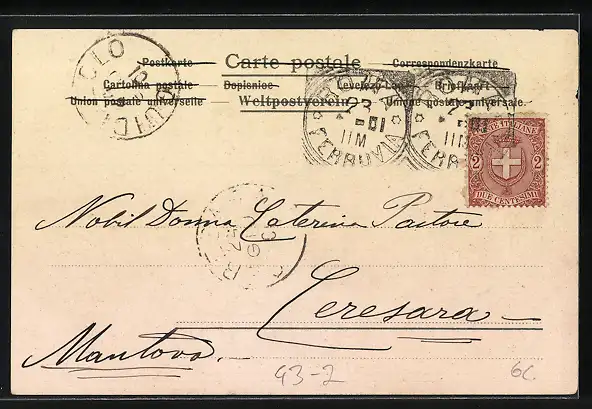 Postkarte Carte postale Correspondenzkarte
Cartolina postale Dopisnice Levelező-Lap Briefkaart
Union postale universelle Weltpostverein Unione postale universale.
CLO
FERROVIA
23
11M
FERROVIA
11M
POSTE ITALIANE
2 2
DUE CENTESIMI
Nobil Donna Caterina Pastore
Ceresara
Mantova.
43-2
6c